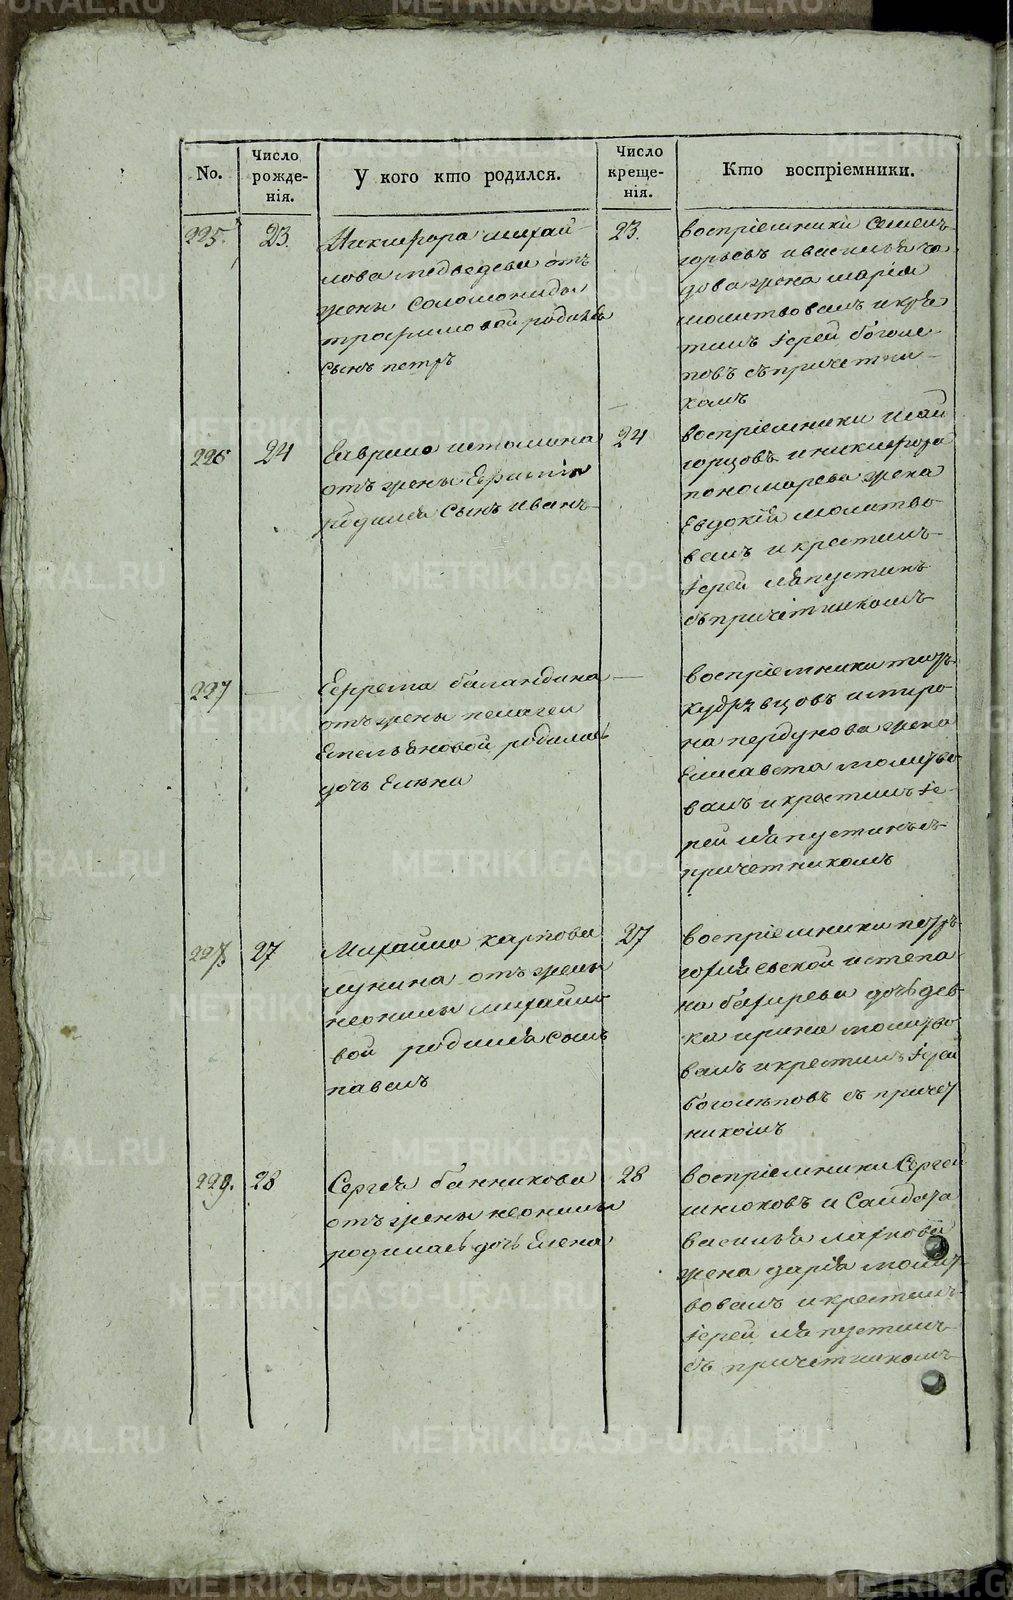 No.
Число рожде-нія.
У кого кто родился.
Число креще-нія.
Кто воспріемники.
225.
23.
Никифора михай-
лова медведева отъ
жены Соломониды
трофимовой родился
сынъ петръ
23.
воспріемники Семенъ
жена марія
молитвовалъ и кре
тилъ іерей боголе-
повъ съ причетни-
комъ
226
24
Гаврило истомина
отъ жены Ефиміи
родился сынъ иванъ
24
воспріемники
и никифора
пономарева жена
Евдокія молитво-
валъ и крестилъ
іерей лапустинъ
съ причетникомъ
227
—
Ефрема баландина
отъ жены пелагеи
Емельяновой родилась
дочь Елена
—
воспріемники
на пердунова жена
Елисавета молитво-
валъ и крестилъ іе-
рей лапустинъ съ
причетникомъ
228
27
Михайло карпова
лунина отъ жены
неонилы михайло-
вой родился сынъ
павелъ
27
воспріемники петръ
и степа-
на дочь дев-
ка ирина молитво-
валъ и крестилъ іерей
боголѣповъ съ причет
никомъ
229.
28
Сергея банникова
отъ жены неонилы
родилась дочь Елена
28
воспріемники Сергей
и Солдата
василья
жена дарія молит-
вовалъ и крестилъ
іерей лапустинъ
съ причетникомъ
METRIKI.GASO-URAL.RU